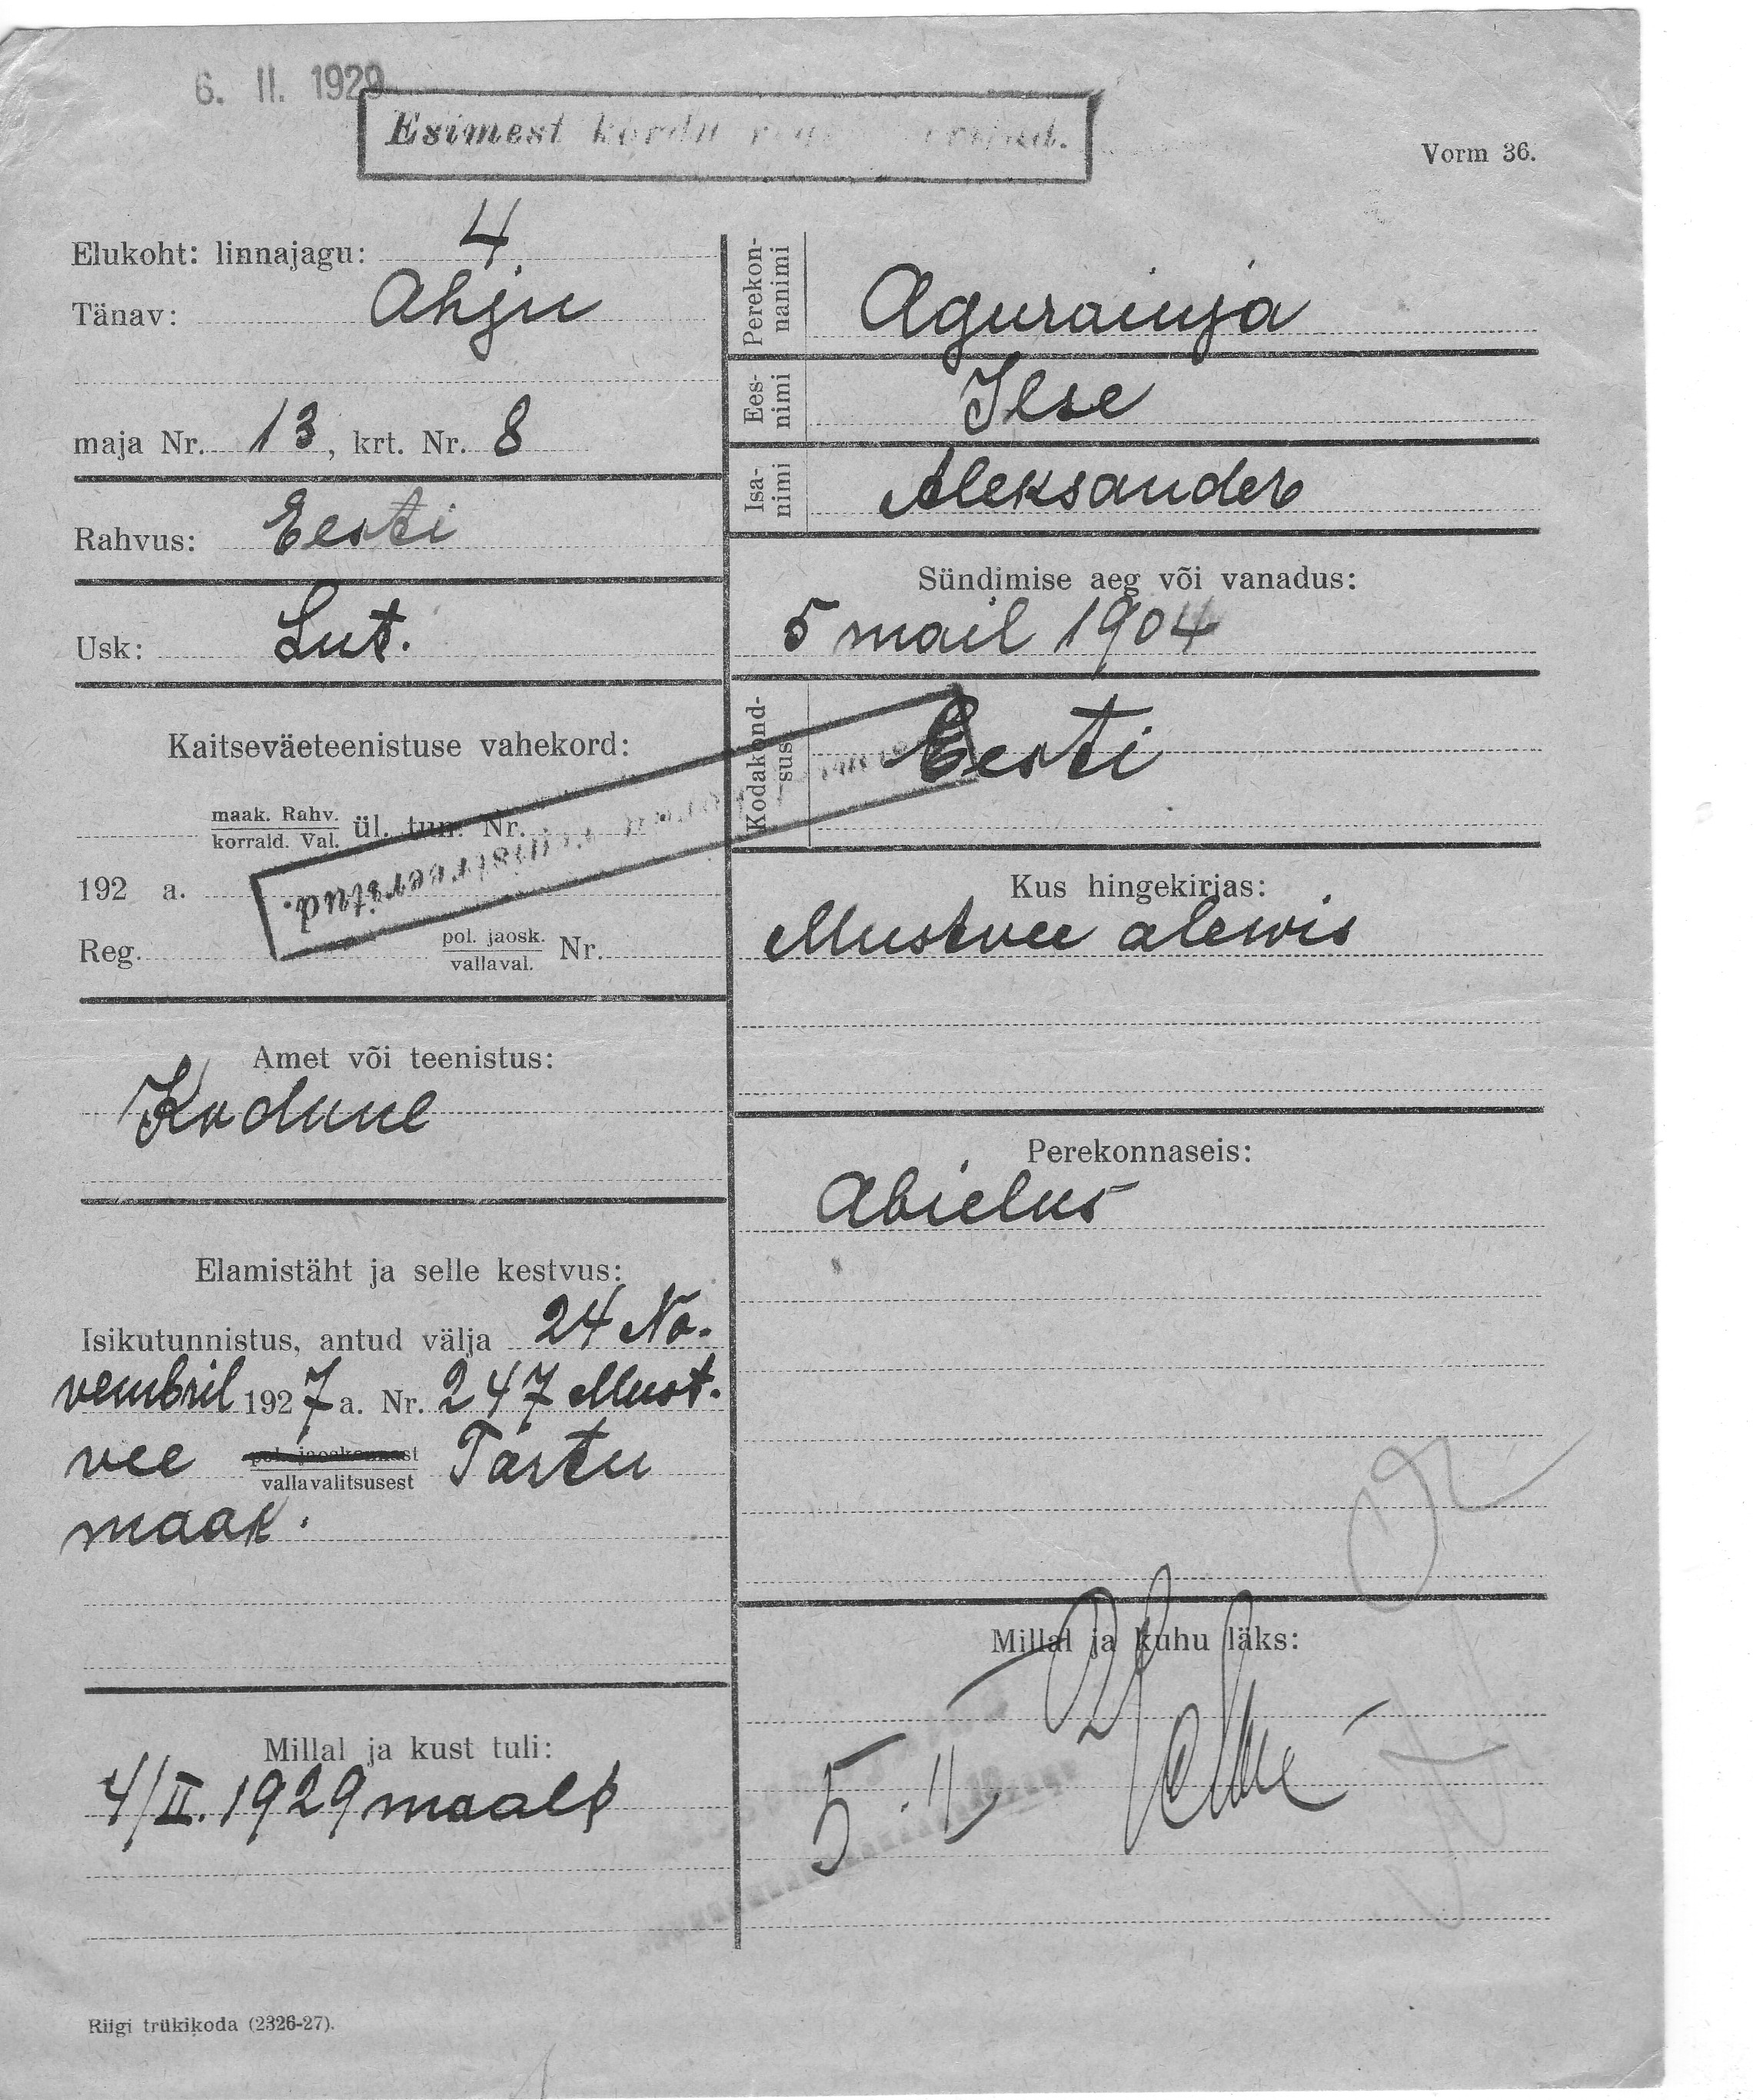 6. II. 1929
Esimest korda registreeritud.
Vorm 36.
Elukoht: linnajagu: 4
Tänav: Ahju
maja Nr. 13, krt. Nr. 8
Rahvus: Eesti
Usk: Lut.
Kaitseväeteenistuse vahekord:
maak. Rahv.
korrald. Val. ül. tun. Nr.
192 a.
Reg. pol. jaosk.
vallaval. Nr.
registreeritud.
Amet või teenistus:
Kodune
Elamistäht ja selle kestvus:
Isikutunnistus, antud välja 24 No-
vembril 1927 a. Nr. 247 Must-
vee pol. jaoskonnast
vallavalitsusest Tartu
maak.
Millal ja kust tuli:
4/II. 1929 maalt
Perekon-
nanimi
Aguraiuja
Ees-
nimi
Ilse
Isa-
nimi
Aleksander
Sündimise aeg või vanadus:
5 mail 1904
Kodakond-
sus
Eesti
Kus hingekirjas:
Mustvee alewis
Perekonnaseis:
Abielus
Millal ja kuhu läks:
5. II
Riigi trükikoda (2326-27).